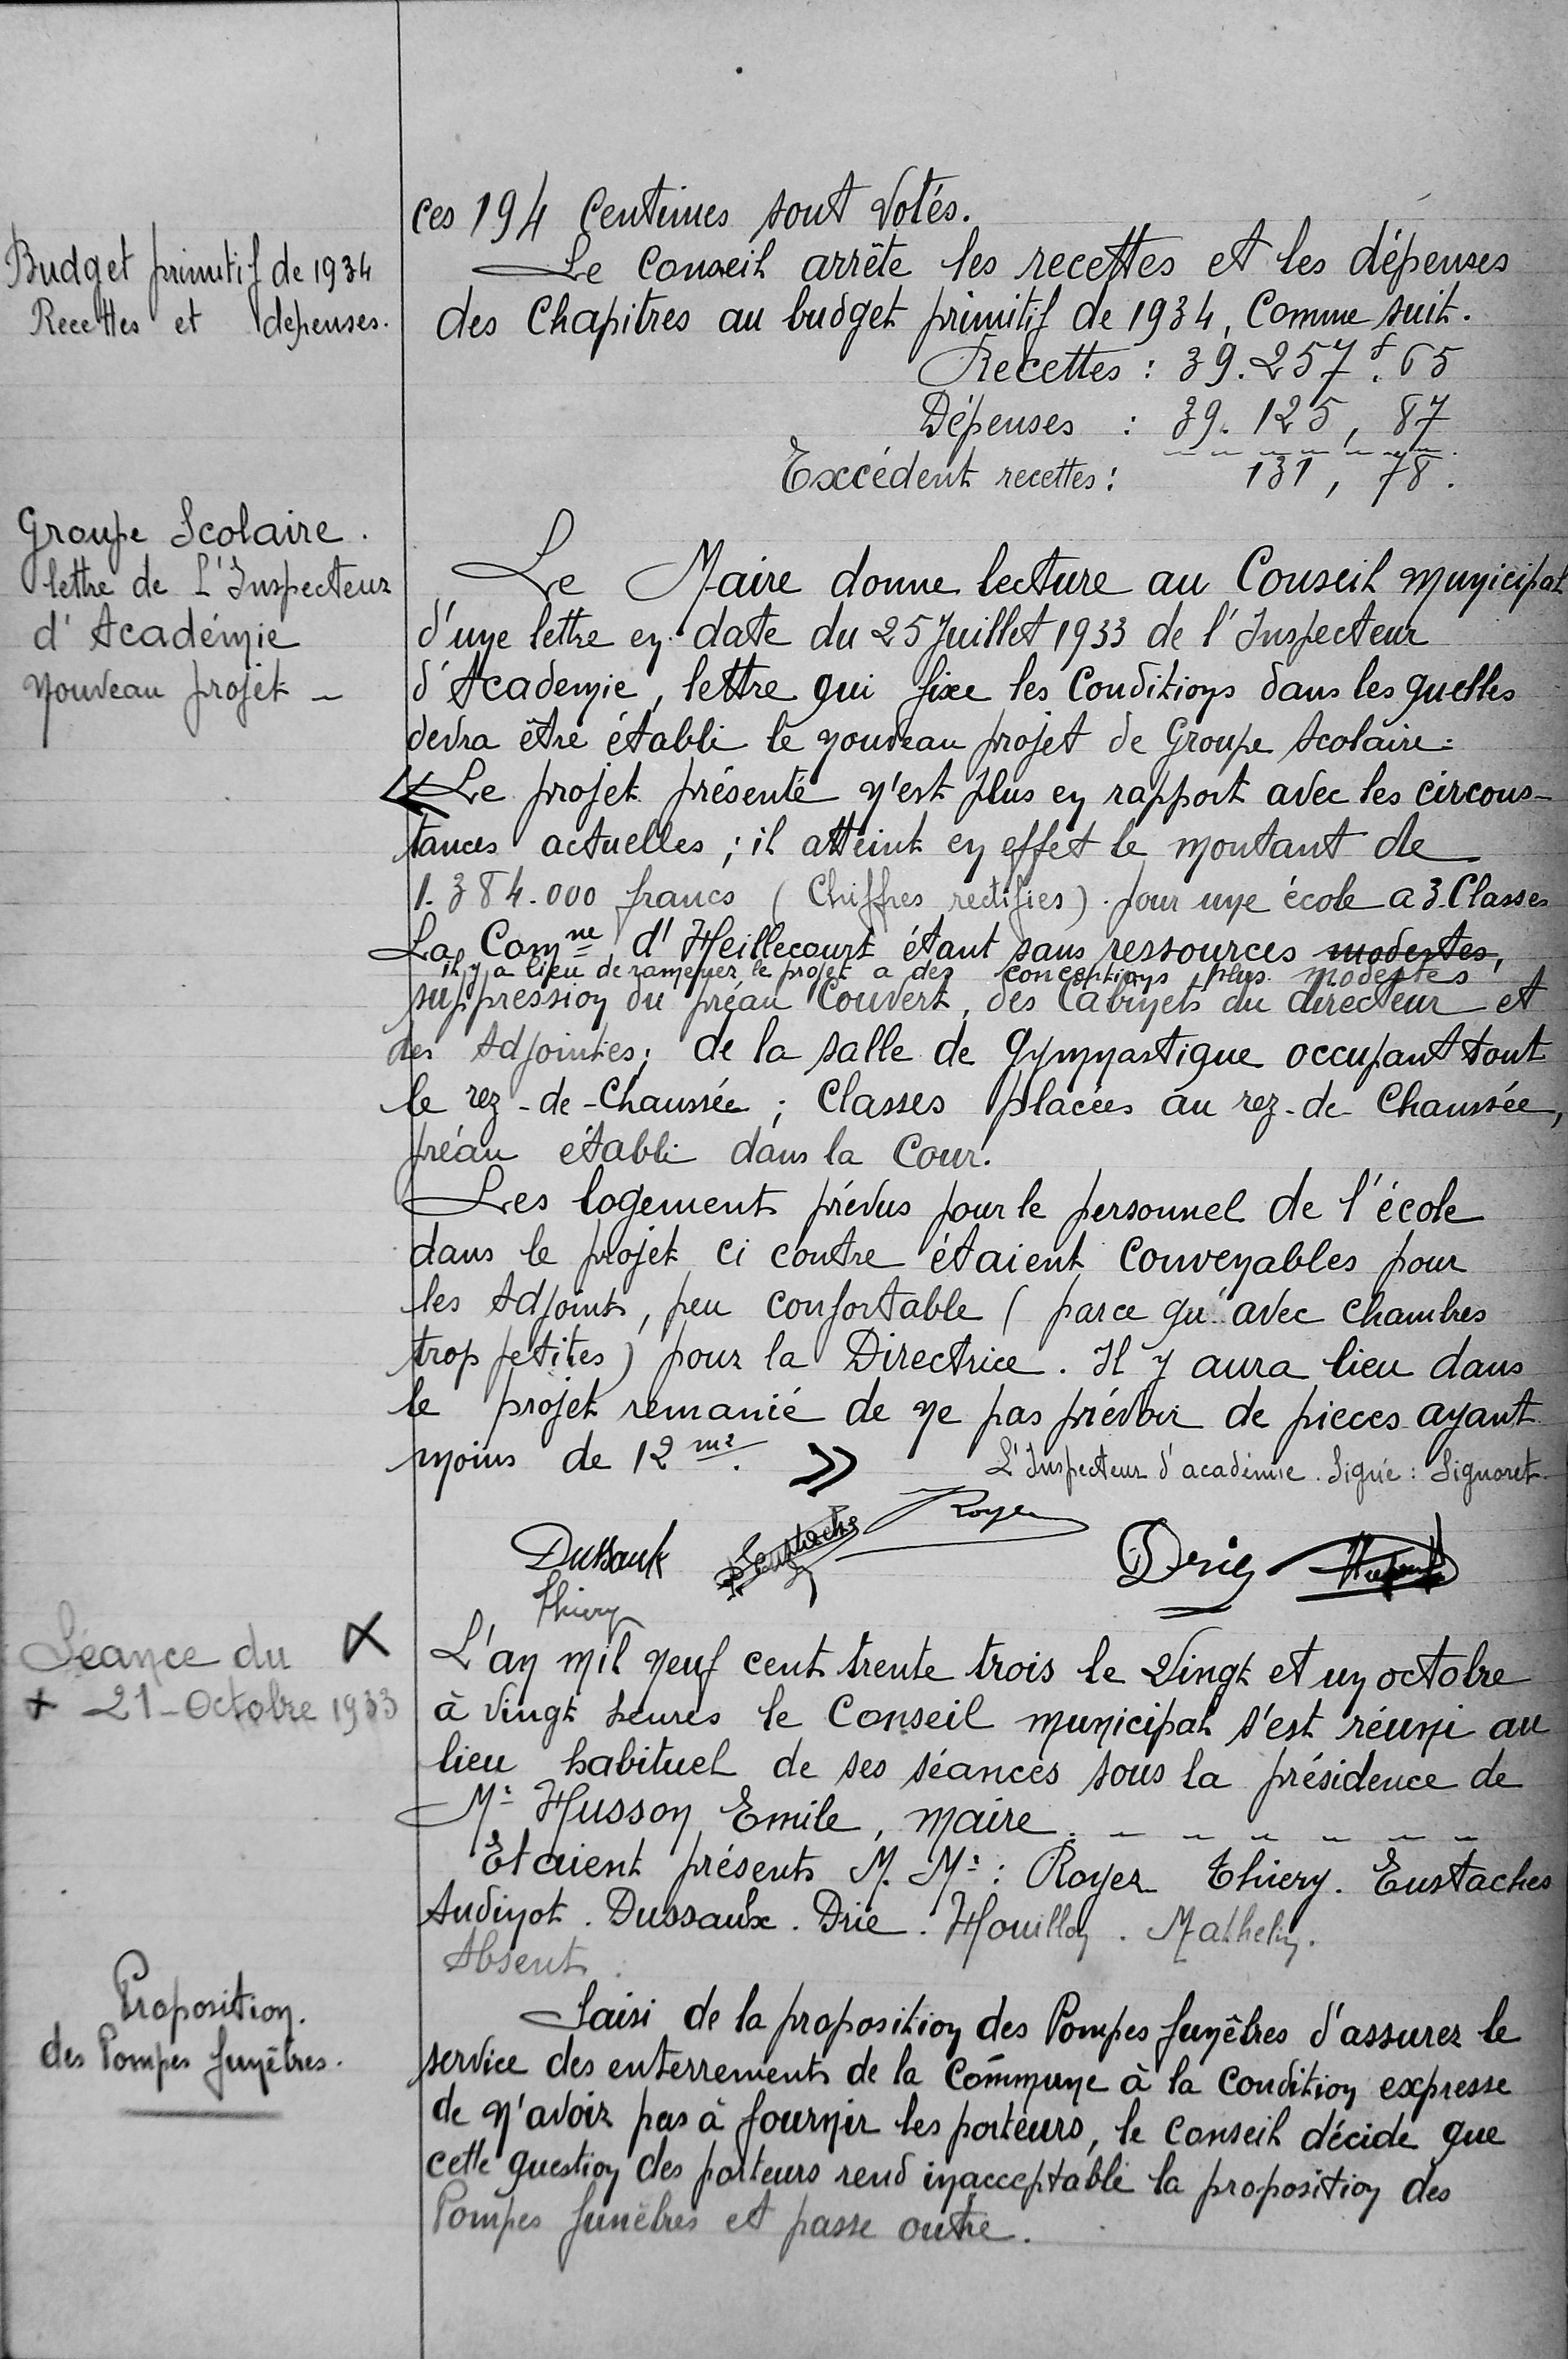 ces 194 Centimes sont votés.
Budget primitif de 1934
Recettes et dépenses.
Le Conseil arrête les recettes et les dépenses
des Chapitres au budget primitif de 1934, Comme suit.
Recettes : 39.257f.65
Dépenses : 39.125,87
Excédent recettes : 131,78.
Groupe Scolaire.
lettre de L'Inspecteur
d'Académie
nouveau projet -
Le Maire donne lecture au Conseil municipal
d'une lettre en date du 25 Juillet 1933 de l'Inspecteur
d'Academie, lettre qui fixe les Conditions dans les quelles
devra être établi le nouveau projet de Groupe Scolaire :
« Le projet présenté n'est plus en rapport avec les circons-
tances actuelles ; il atteint en effet le montant de
1.384.000 francs (Chiffres rectifiés) pour une école a 3 Classes
La Comne d'Heillecourt étant sans ressources modestes,
il y a lieu de ramener le projet a des conceptions plus modestes
suppression du préau Couvert, des Cabinets du directeur et
des Adjointes ; de la salle de Gymnastique occupant tout
le rez-de-Chaussée ; Classes placées au rez-de Chaussée,
préau établi dans la Cour.
Les logements prévus pour le personnel de l'école
dans le projet ci contre étaient Convenables pour
les Adjoints, peu confortable (parce qu'avec chambres
trop petites) pour la Directrice. Il y aura lieu dans
le projet remanié de ne pas prévoir de pieces ayant
moins de 12 m2. »
L'Inspecteur d'académie. Signé : Signoret
Dussaux Eustache Royer Drie
Thiery
Séance du
21 - Octobre 1933
L'an mil neuf cent trente trois le Vingt et un octobre
à Vingt heures le Conseil municipal s'est réuni au
lieu habituel de ses séances sous la présidence de
Mr Husson Emile, maire.
Etaient présents M.Mrs : Royer Thiery. Eustaches
Audinot. Dussaulx. Drie. Houillon. Mathelin.
Absent.
Proposition.
des Pompes funèbres.
Saisi de la proposition des Pompes funêbres d'assurer le
service des enterrements de la Commune à la Condition expresse
de n'avoir pas à fournir les porteurs, le Conseil décide que
cette question des porteurs rend inacceptable la proposition des
Pompes funèbres et passe outre.